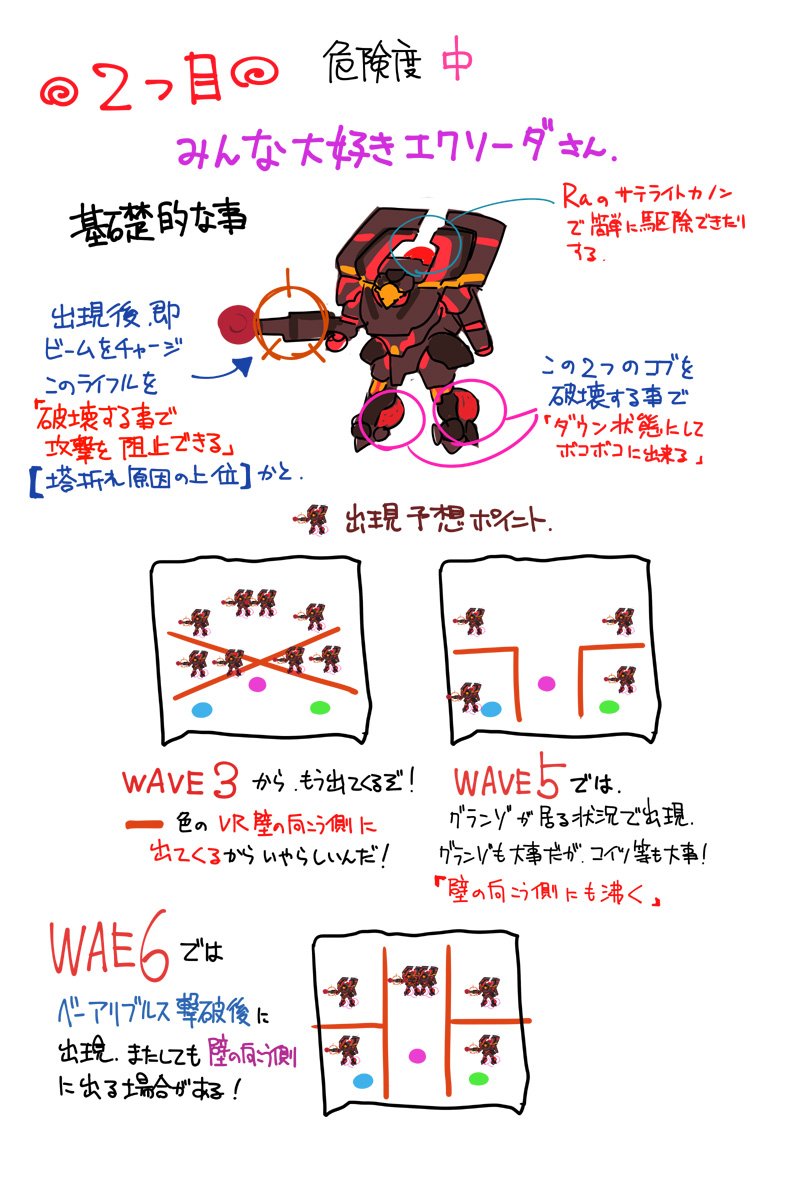 2つ目
危険度 中
みんな大好きエクソーダさん.
基礎的な事
Raのサテライトカノン
で簡単に駆除できたり
する.
出現後.即
ビームをチャージ
このライフルを
「破壊する事で
攻撃を阻止できる」
[塔折れ原因の上位]かと.
この2つのコブを
破壊する事で
「ダウン状態にして
ボコボコに出来る」
出現予想ポイント.
WAVE3から.もう出てくるぞ!
色のVR壁の向こう側に
出てくるからいやらしいんだ!
WAVE5では.
グランゾが居る状況で出現.
グランゾも大事だが.コイツ等も大事!
「壁の向こう側にも沸く」
WAE6では
ベーアリブルス撃破後に
出現.またしても壁の向こう側
に出る場合がある!